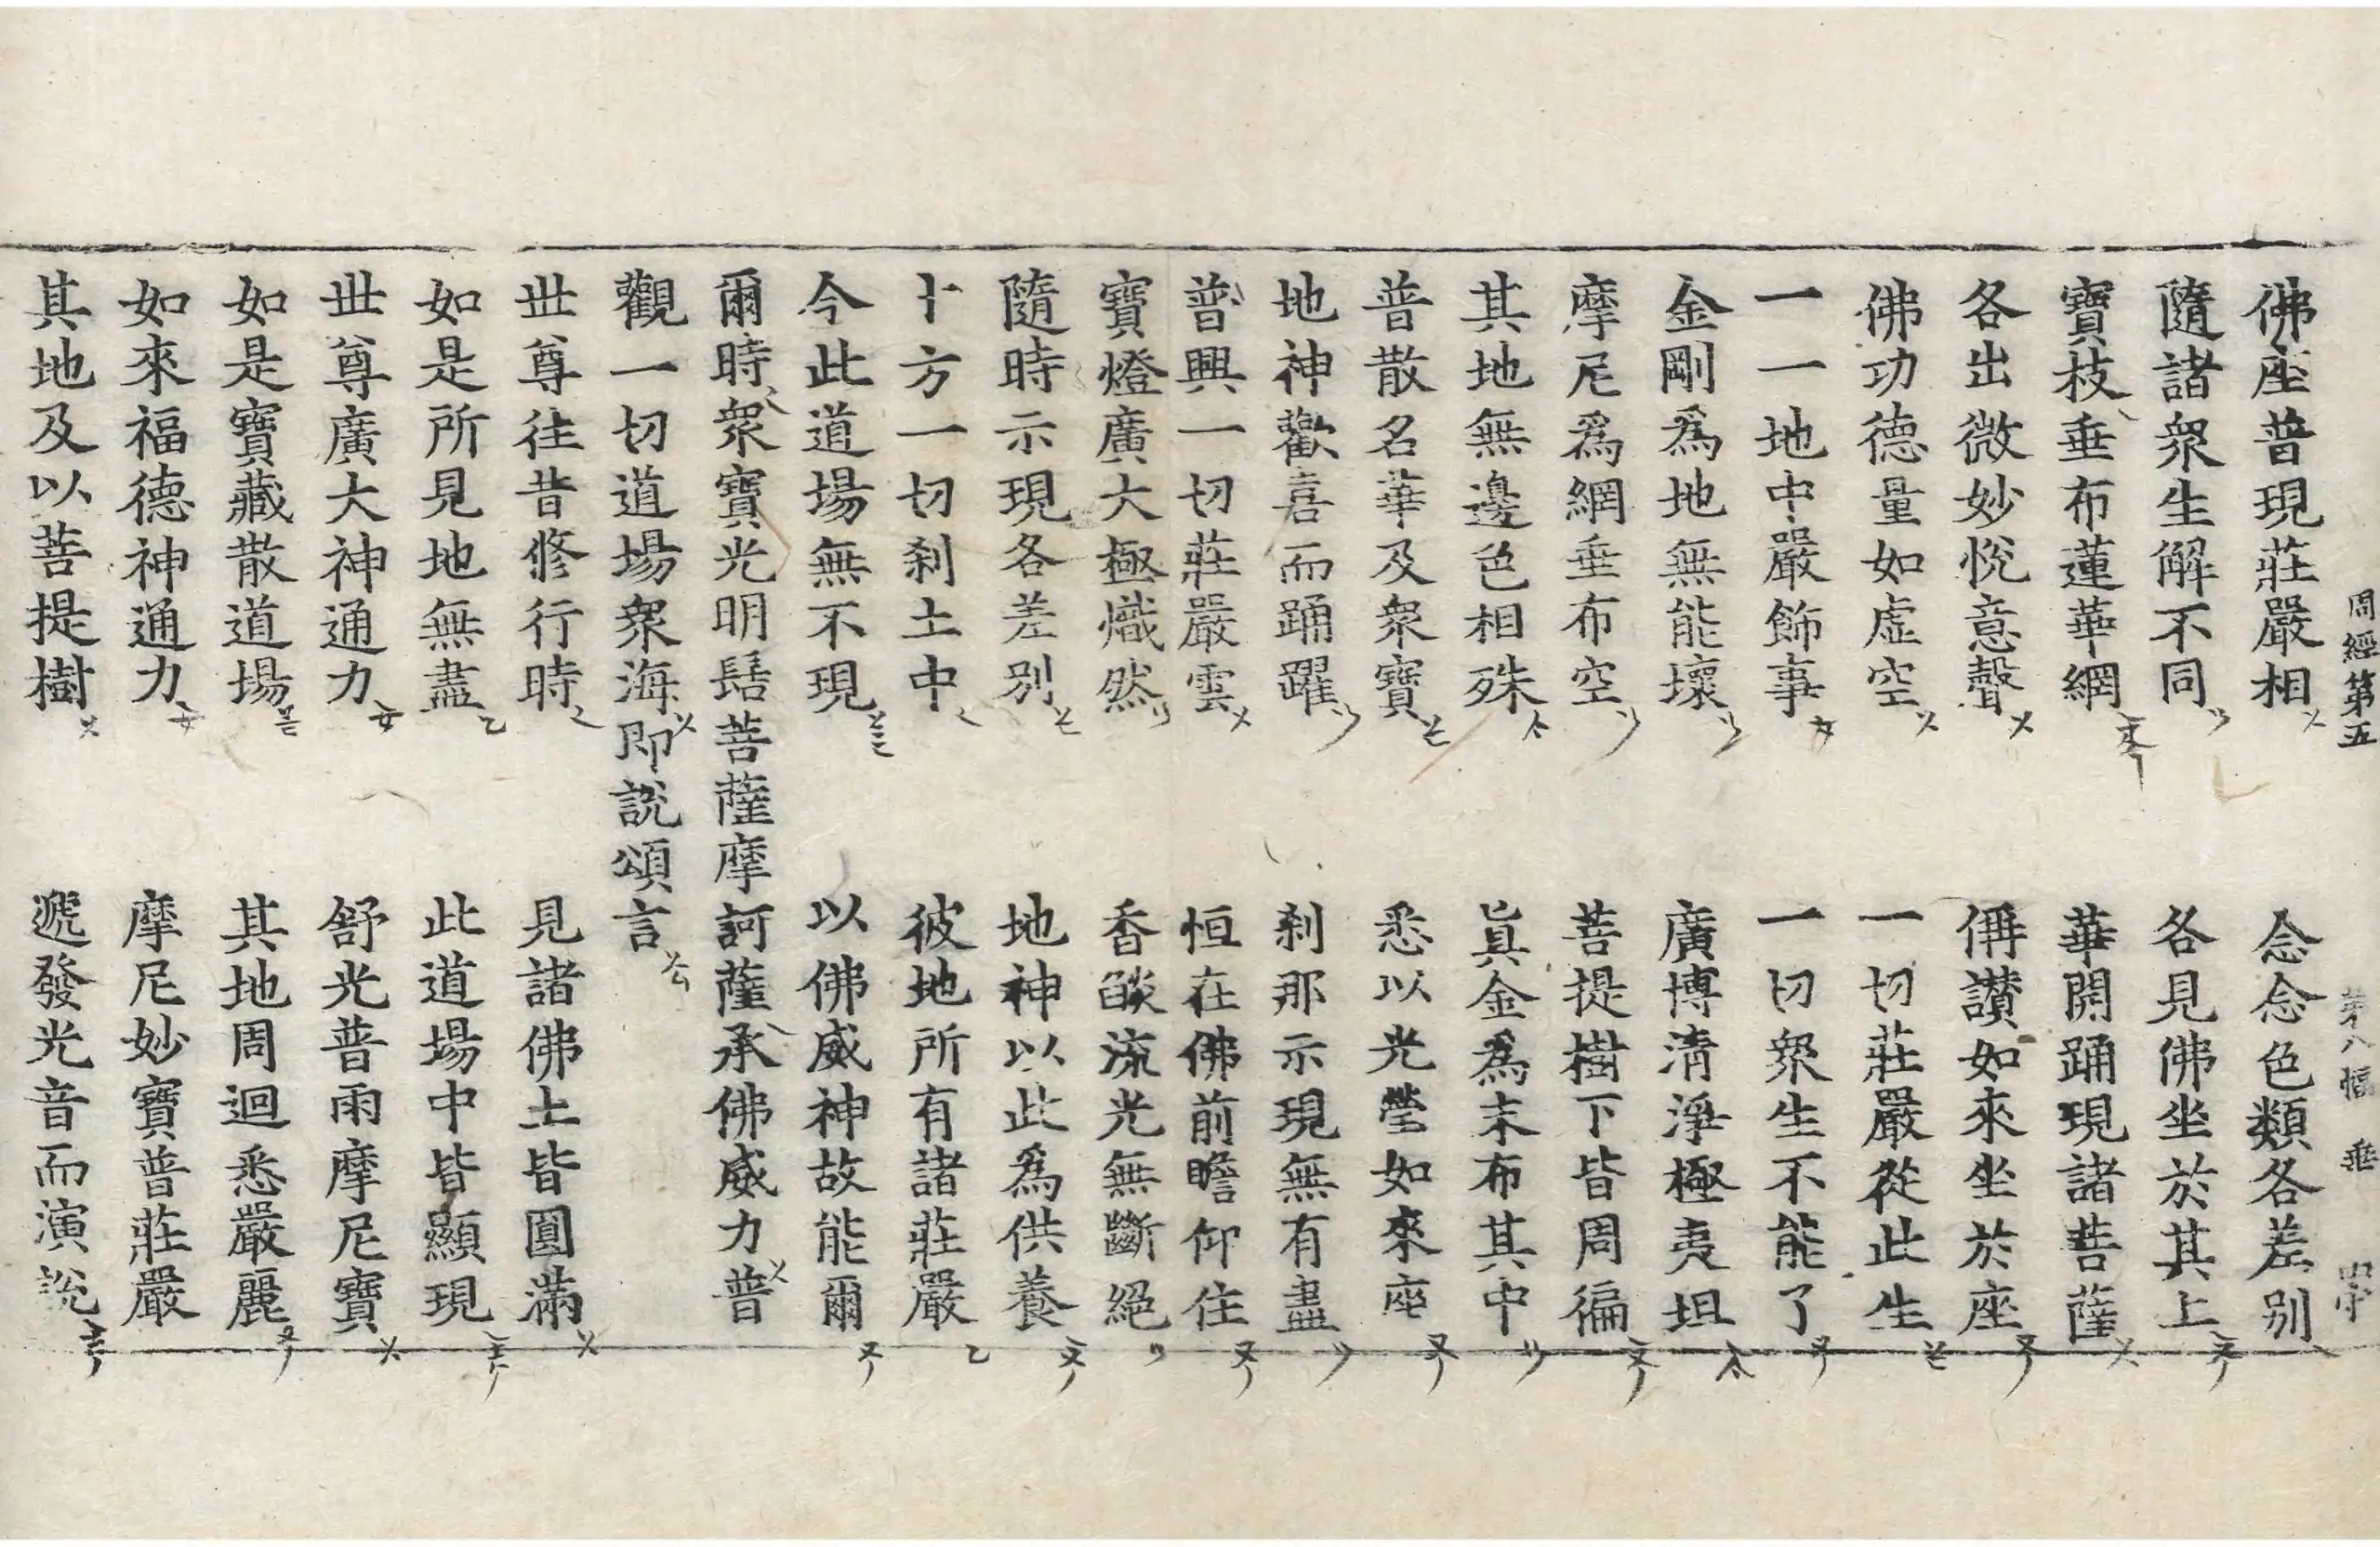 周經第五 第八幅 垂
佛座普現莊嚴相 念念色類各差別
隨諸衆生解不同 各見佛坐於其上
寶枝垂布蓮華網 華開踊現諸菩薩
各出微妙悅意聲 偁讃如來坐於座
佛功德量如虛空 一切莊嚴從此生
一一地中嚴飾事 一切衆生不能了
金剛爲地無能壞 廣博淸淨極夷坦
摩尼爲網垂布空 菩提樹下皆周徧
其地無邊色相殊 眞金爲末布其中
普散名華及衆寶 悉以光瑩如來座
地神歡喜而踊躍 刹那示現無有盡
普興一切莊嚴雲 恒在佛前瞻仰住
寶燈廣大極熾然 香燄流光無斷絕
隨時示現各差別 地神以此爲供養
十方一切刹土中 彼地所有諸莊嚴
今此道場無不現 以佛威神故能爾
爾時衆寶光明髻菩薩摩訶薩承佛威力普
觀一切道場衆海即說頌言
世尊往昔修行時 見諸佛土皆圓滿
如是所見地無盡 此道場中皆顯現
世尊廣大神通力 舒光普雨摩尼寶
如是寶藏散道場 其地周迴悉嚴麗
如來福德神通力 摩尼妙寶普莊嚴
其地及以菩提樹 遞發光音而演說